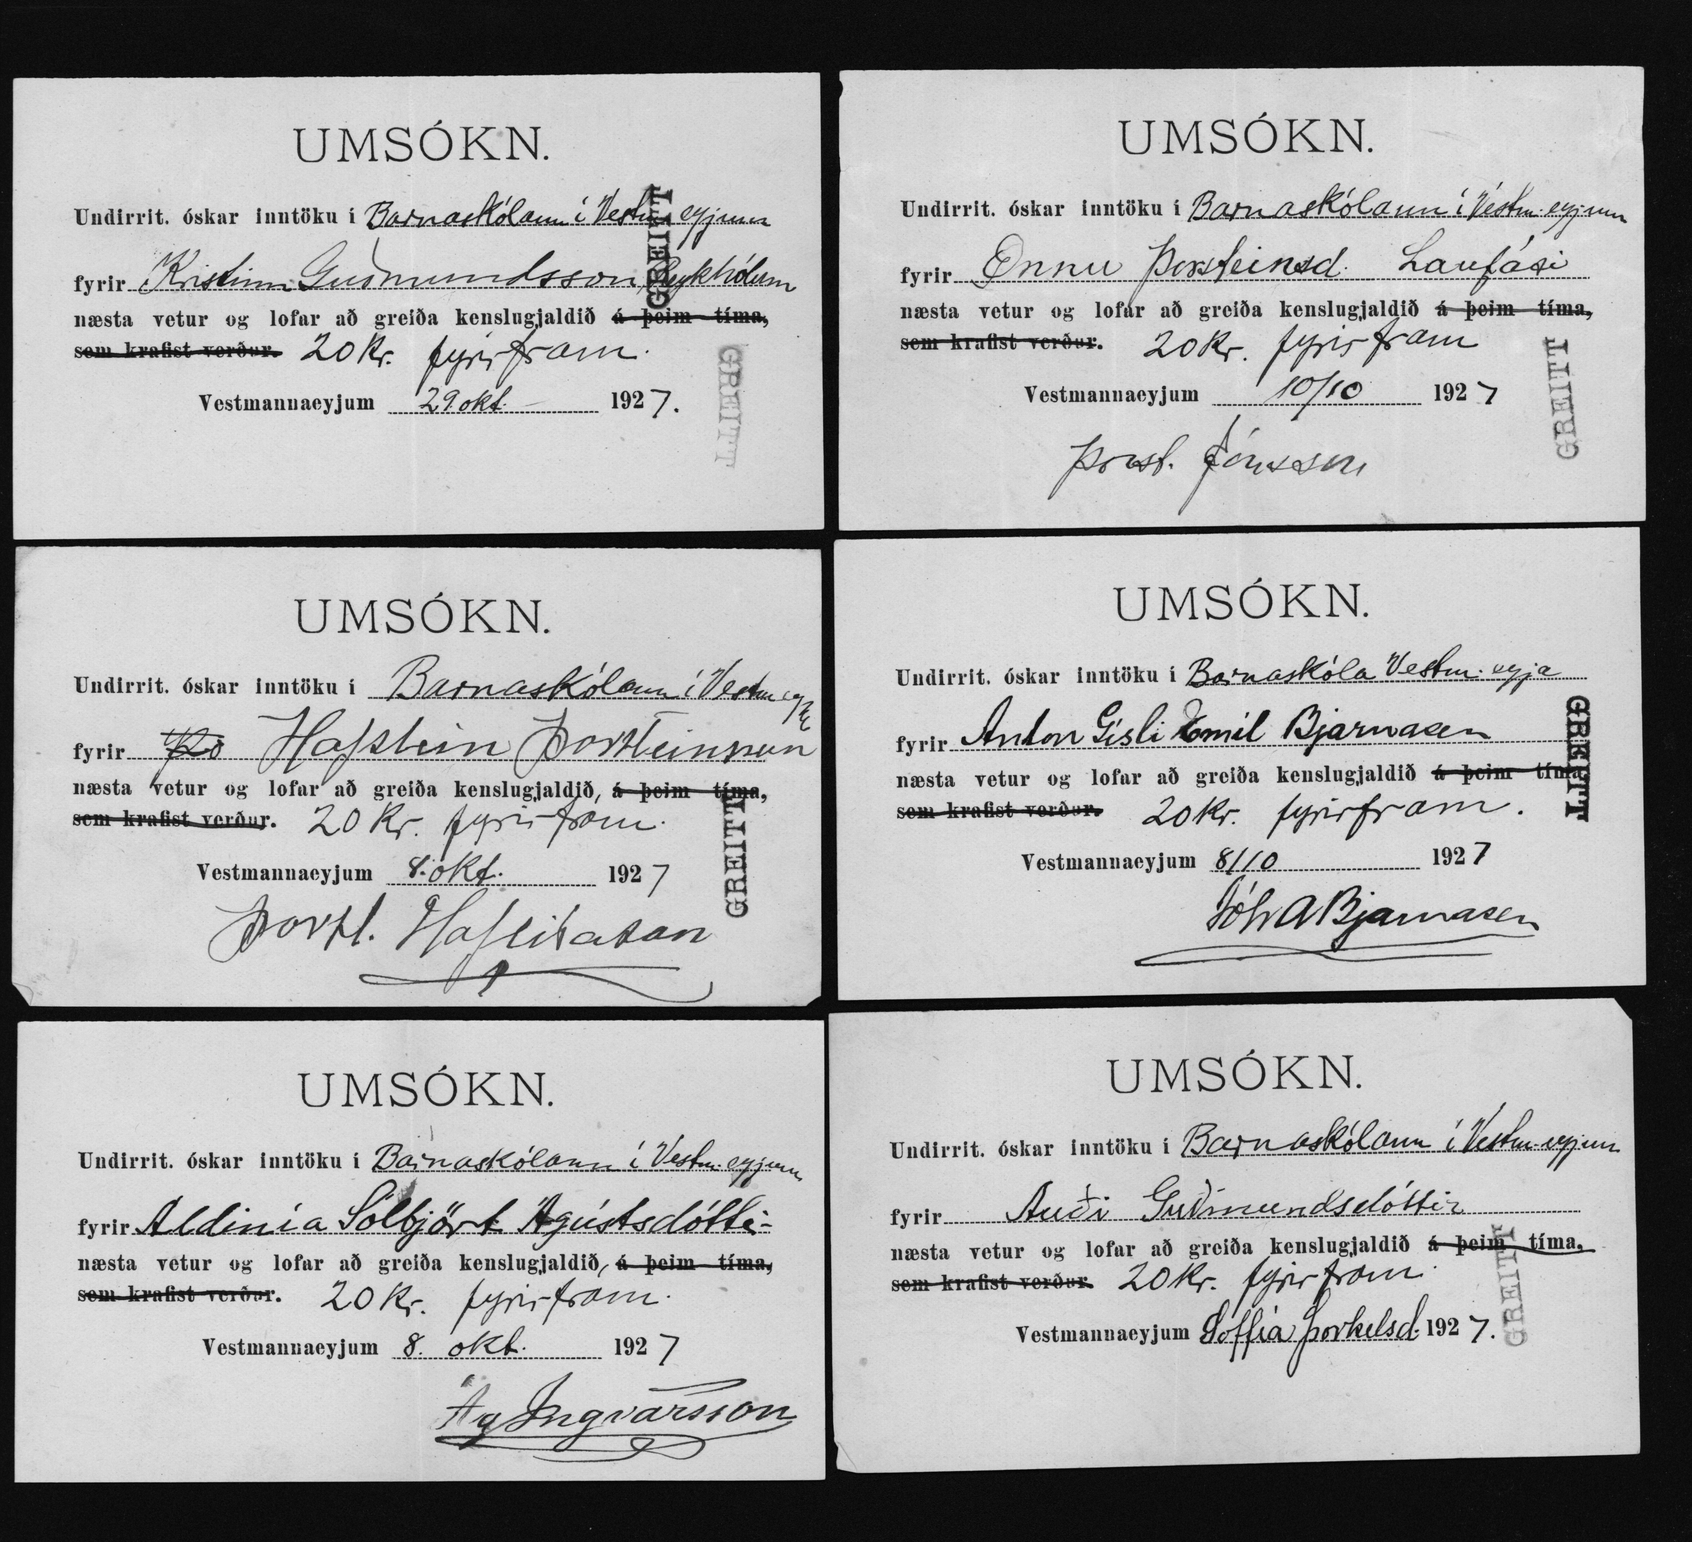 UMSÓKN.
Undirrit. óskar inntöku í Barnaskólann í Vestm. eyjum
fyrir Kristinn Guðmundsson, Reykhólum
næsta vetur og lofar að greiða kenslugjaldið á þeim tíma,
sem krafist verður. 20 Kr. fyrirfram.
Vestmannaeyjum 29 okt. 1927.
GREITT
GREITT
UMSÓKN.
Undirrit. óskar inntöku í Barnaskólann í Vestm. eyjum
fyrir Önnu Þorsteinsd. Laufási
næsta vetur og lofar að greiða kenslugjaldið á þeim tíma,
sem krafist verður. 20 Kr. fyrirfram
Vestmannaeyjum 10/10 1927
Þorst. Jónsson
GREITT
UMSÓKN.
Undirrit. óskar inntöku í Barnaskólann í Vestm. eyj
fyrir Hafstein Þorsteinsson
næsta vetur og lofar að greiða kenslugjaldið, á þeim tíma,
sem krafist verður. 20 Kr. fyrirfram.
Vestmannaeyjum 8. okt. 1927
Þorst. Hafliðason
GREITT
UMSÓKN.
Undirrit. óskar inntöku í Barnaskóla Vestm. eyja
fyrir Anton Gísli Emil Bjarnasen
næsta vetur og lofar að greiða kenslugjaldið á þeim tíma,
sem krafist verður. 20 Kr. fyrirfram.
Vestmannaeyjum 8/10 1927
Jóh A Bjarnasen
GREITT
UMSÓKN.
Undirrit. óskar inntöku í Barnaskólann í Vestm. eyjum
fyrir Aldinía Sólbjört Ágústsdóttir
næsta vetur og lofar að greiða kenslugjaldið, á þeim tíma,
sem krafist verður. 20 Kr. fyrirfram.
Vestmannaeyjum 8. okt. 1927
Ág Ingvarsson
UMSÓKN.
Undirrit. óskar inntöku í Barnaskólann í Vestm. eyjum
fyrir Auði Guðmundsdóttir
næsta vetur og lofar að greiða kenslugjaldið á þeim tíma,
sem krafist verður. 20 Kr. fyrirfram.
Vestmannaeyjum Soffía Þorkelsd. 1927.
GREITT